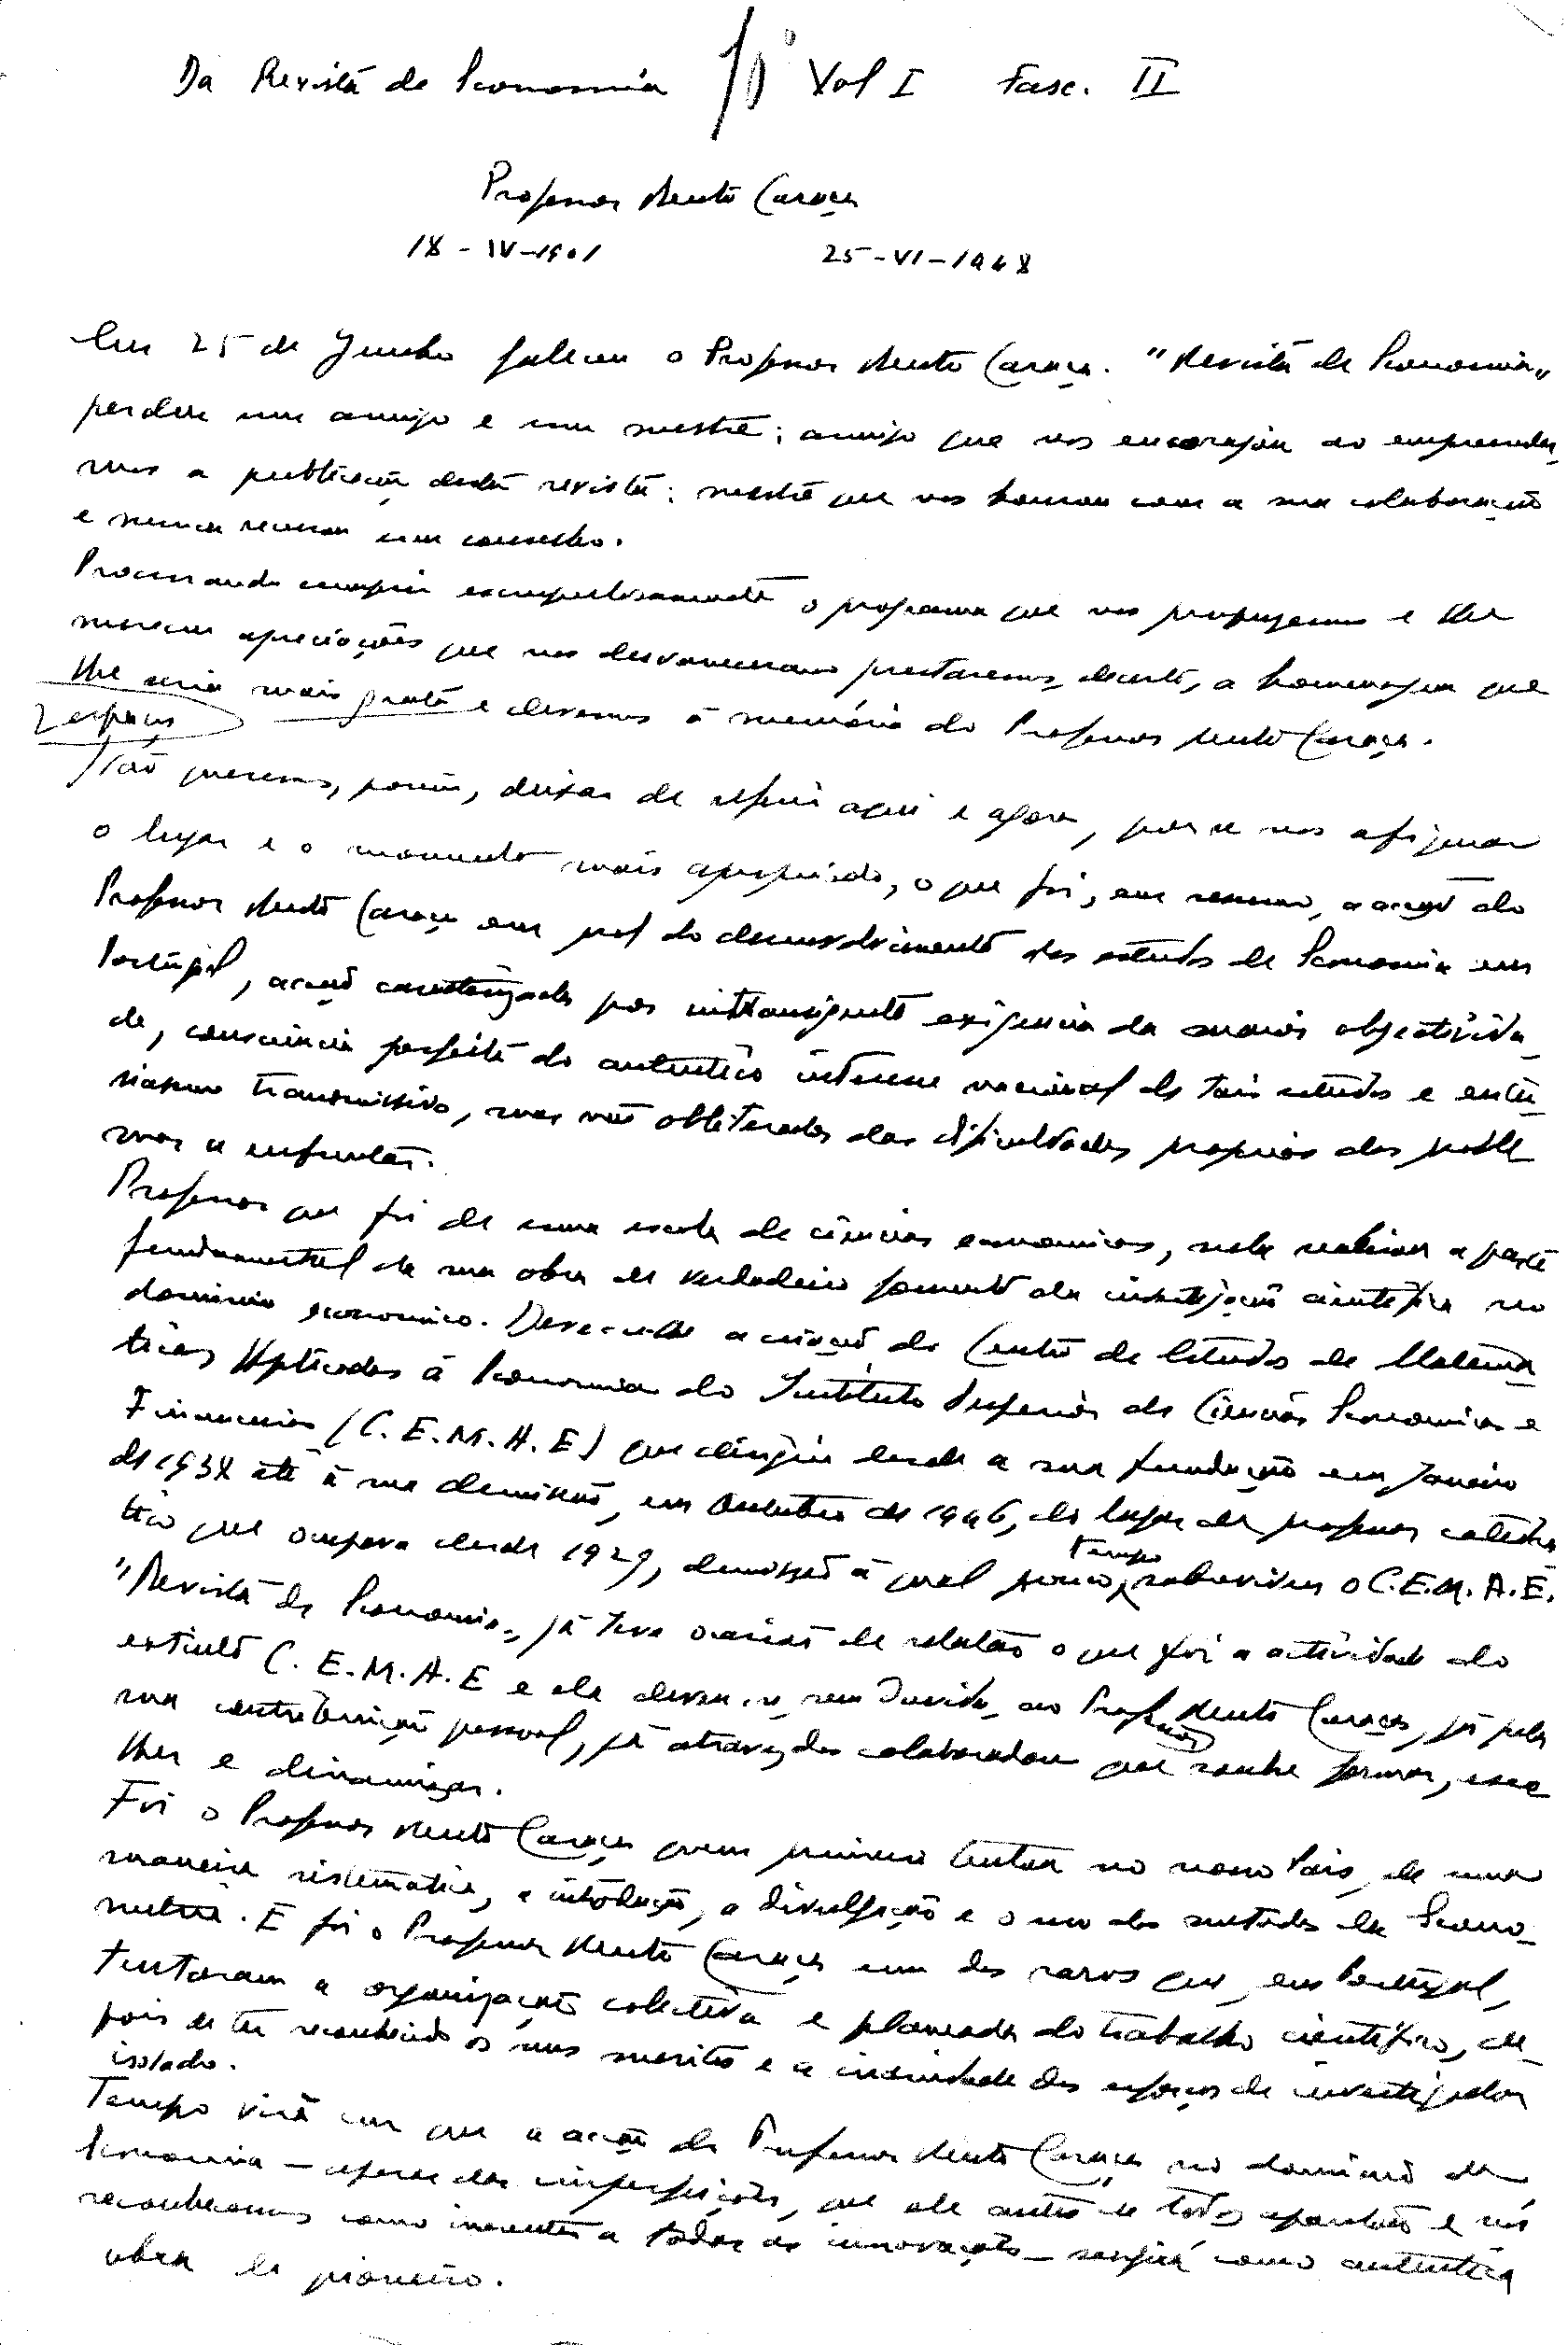 Da Revista de Economia 1º Vol I Fasc. II
Professor Bento Caraça
18-IV-1901 25-VI-1948
Em 25 de Junho faleceu o Professor Bento Caraça. "Revista de Economia"
perdeu um amigo e um mestre; amigo que nos encorajou ao empreender
mos a publicação desta revista; mestre que nos honrou com a sua colaboração
e nunca recusou um conselho.
Procurando cumprir escrupulosamente o programa que nos propusemos e lhe
mereceu apreciações que nos desvaneceram prestaremos, decerto, a homenagem que
lhe seria mais grata e devemos à memória do Professor Bento Caraça.
2 espaços
Não queremos, porém, deixar de referir aqui e agora, por se nos afigurar
o lugar e o momento mais apropriado, o que foi, em resumo, a acção do
Professor Bento Caraça em prol do desenvolvimento dos estudos de Economia em
Portugal, acção caracterizada por intransigente exigencia da maior objectivida_
de, consciencia perfeita do autentico interesse nacional de tais estudos e entu_
siasmo transmissivo, mas não obliterador das dificuldades proprias dos proble
mas a enfrentar.
Professor que foi de uma escola de ciencias economicas, nela realizou a parte
fundamental da sua obra de verdadeiro fomento da investigação cientifica no
dominio economico. Deve-se-lhe a criação do Centro de Estudos de Matema
ticas Aplicadas à Economia do Instituto Superior de Ciencias Economicas e
Financeiras (C.E.M.A.E) que dirigiu desde a sua fundação em Janeiro
de 1938 até à sua demissão, em Outubro de 1946, do lugar de professor catedra
tico que ocupava desde 1929, demissão à qual pouco tempo sobreviveu o C.E.M.A.E.
"Revista de Economia" já teve ocasião de relatar o que foi a actividade do
extinto C.E.M.A.E e ela deveu-se, sem duvida, ao Professor Bento Caraça, já pela
sua contribuição pessoal, já atravez dos colaboradores que soube formar, esco
lher e dinamizar.
Foi o Professor Bento Caraça quem primeiro tentou no nosso Pais, de uma
maneira sistematica, a introdução, a divulgação e o uso dos metodos da Econo_
metria. E foi o Professor Bento Caraça um dos raros que, em Portugal,
tentaram a organização colectiva e planeada do trabalho cientifico, de_
pois de ter reconhecido os seus meritos e a inanidade dos esforços do investigador
isolado.
Tempo virá em que a acção do Professor Bento Caraça no dominio da
Economia — apesar das imperfeições, que ele antes de todos apontou e nós
reconhecemos como inerentes a todas as innovações — surgirá como autentica
obra de pioneiro.